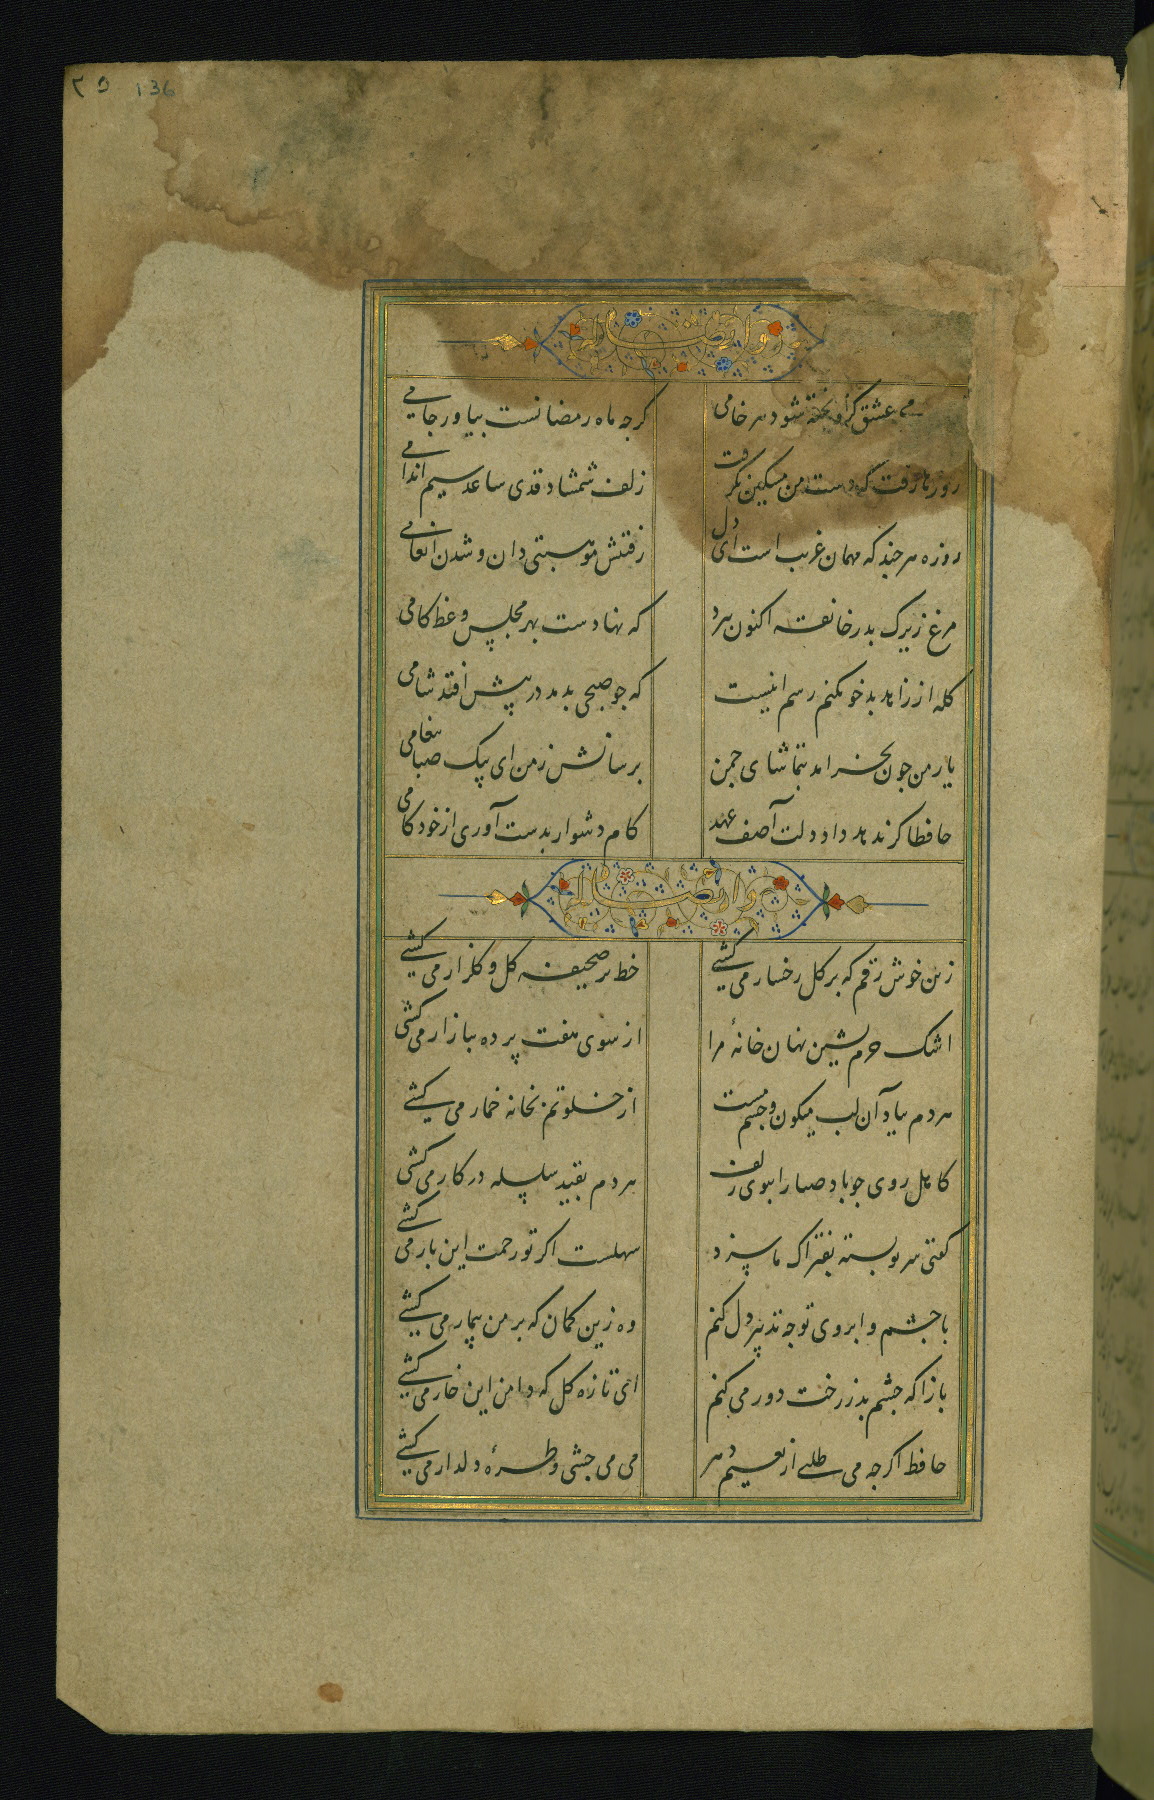 136
وله ایضا
می عشق کزو پخته شود هر خامی
کرچه ماه رمضانست بیاور جامی
روزها رفت که دست من مسکین نکرفت
زلف شمشاد قدی ساعد سیم اندامی
روزه هر چند که مهمان غریب است ای دل
رفتنش موهبتی دان و شدن انعامی
مرغ زیرک بدر خانقه اکنون نپرد
که نهادست بهر مجلس وعظ کامی
کله از زاهد بدخو نکنم رسم اینست
که چو صبحی بدمد در پیش افتد شامی
یار من چون بخرامد بتماشای چمن
برسانش ز من ای پیک صبا پیغامی
حافظا کر ندهد داد دلت آصف عهد
کام دشوار بدست آوری از خودکامی
وله ایضا
زین خوش رقم که بر کل رخسار می کشی
خط بر صحیفه کل و کلزار می کشی
اشک حرم نشین نهان خانهٔ مرا
از سوی هفت پرده ببازار می کشی
هر دم بیاد آن لب میکون و چشم مست
از خلوتم بخانه خمار می کشی
کاهل روی چو باد صبا را ببوی زلف
هر دم بقید سلسله در کار می کشی
کفتی سر تو بسته بفتراک ما سزد
سهلست اکر تو زحمت این بار می کشی
با چشم و ابروی تو چه تدبیر دل کنم
وه زین کمان که بر من بیمار می کشی
بازا که چشم بد ز رخت دور می کنم
ای تازه کل که دامن ازین خار می کشی
حافظ اکرچه می طلبی از نعیم دهر
می می چشی و طرهٔ دلدار می کشی